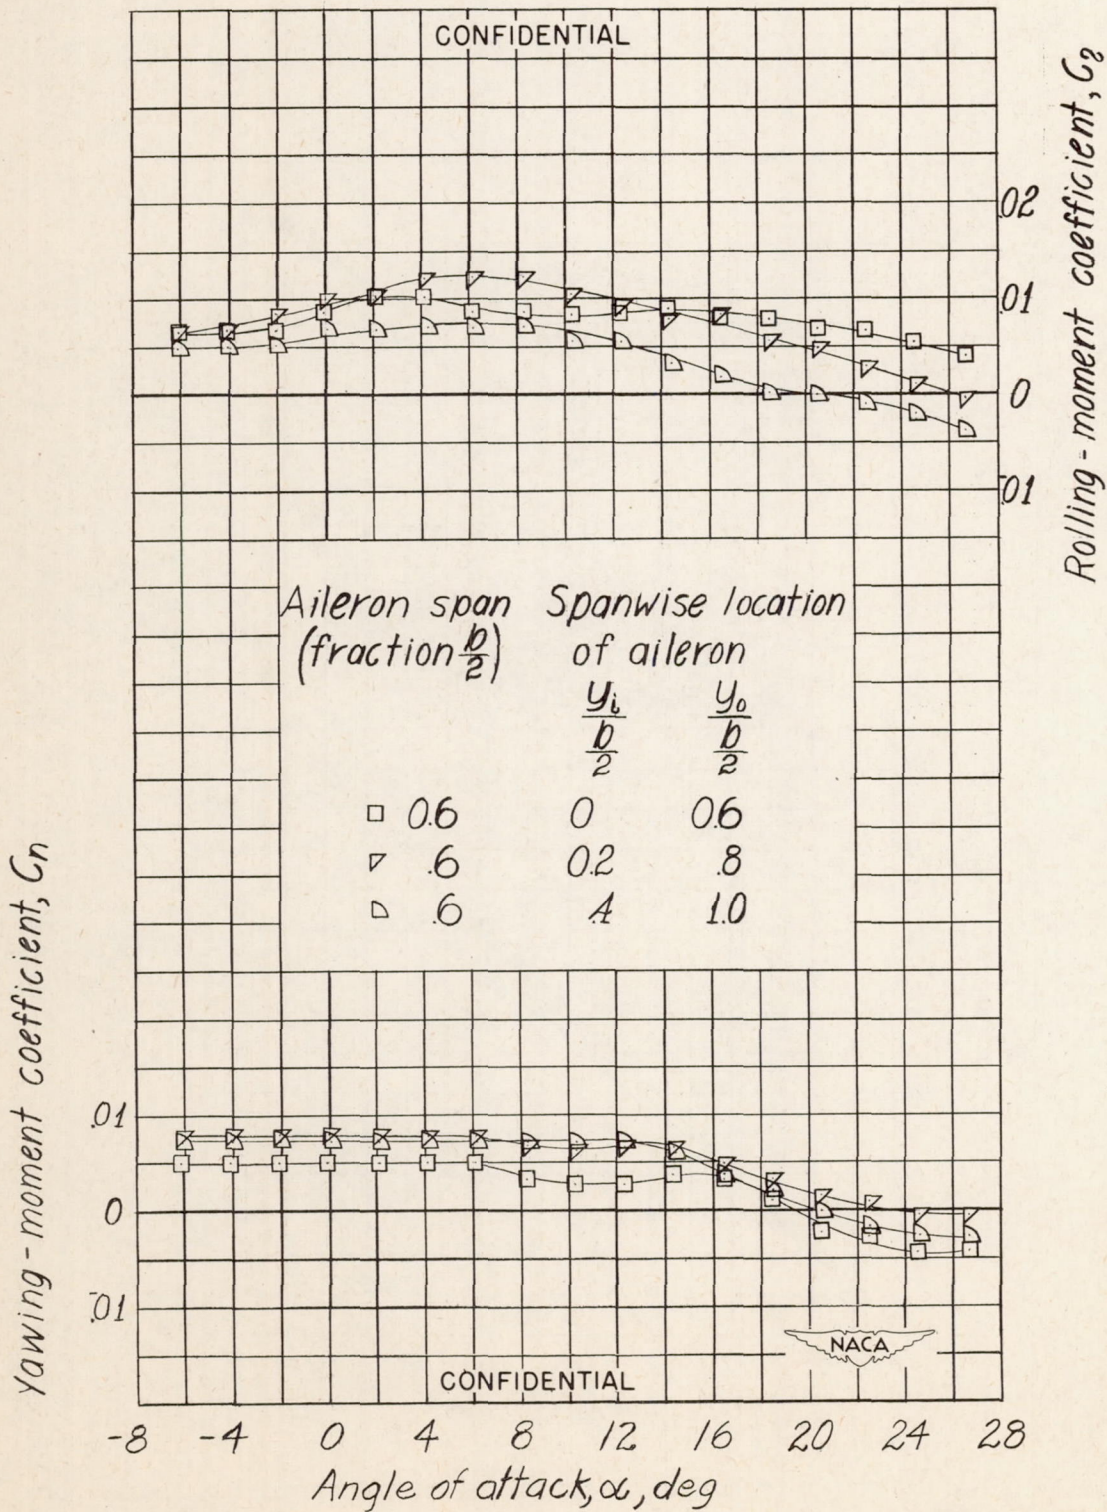 CONFIDENTIAL
.02
.01
0
-.01
Rolling-moment coefficient, Cl
Aileron span Spanwise location
(fraction b/2) of aileron
yi/(b/2) yo/(b/2)
0.6 0 0.6
.6 0.2 .8
.6 .4 1.0
Yawing-moment coefficient, Cn
.01
0
-.01
NACA
CONFIDENTIAL
-8 -4 0 4 8 12 16 20 24 28
Angle of attack, α, deg